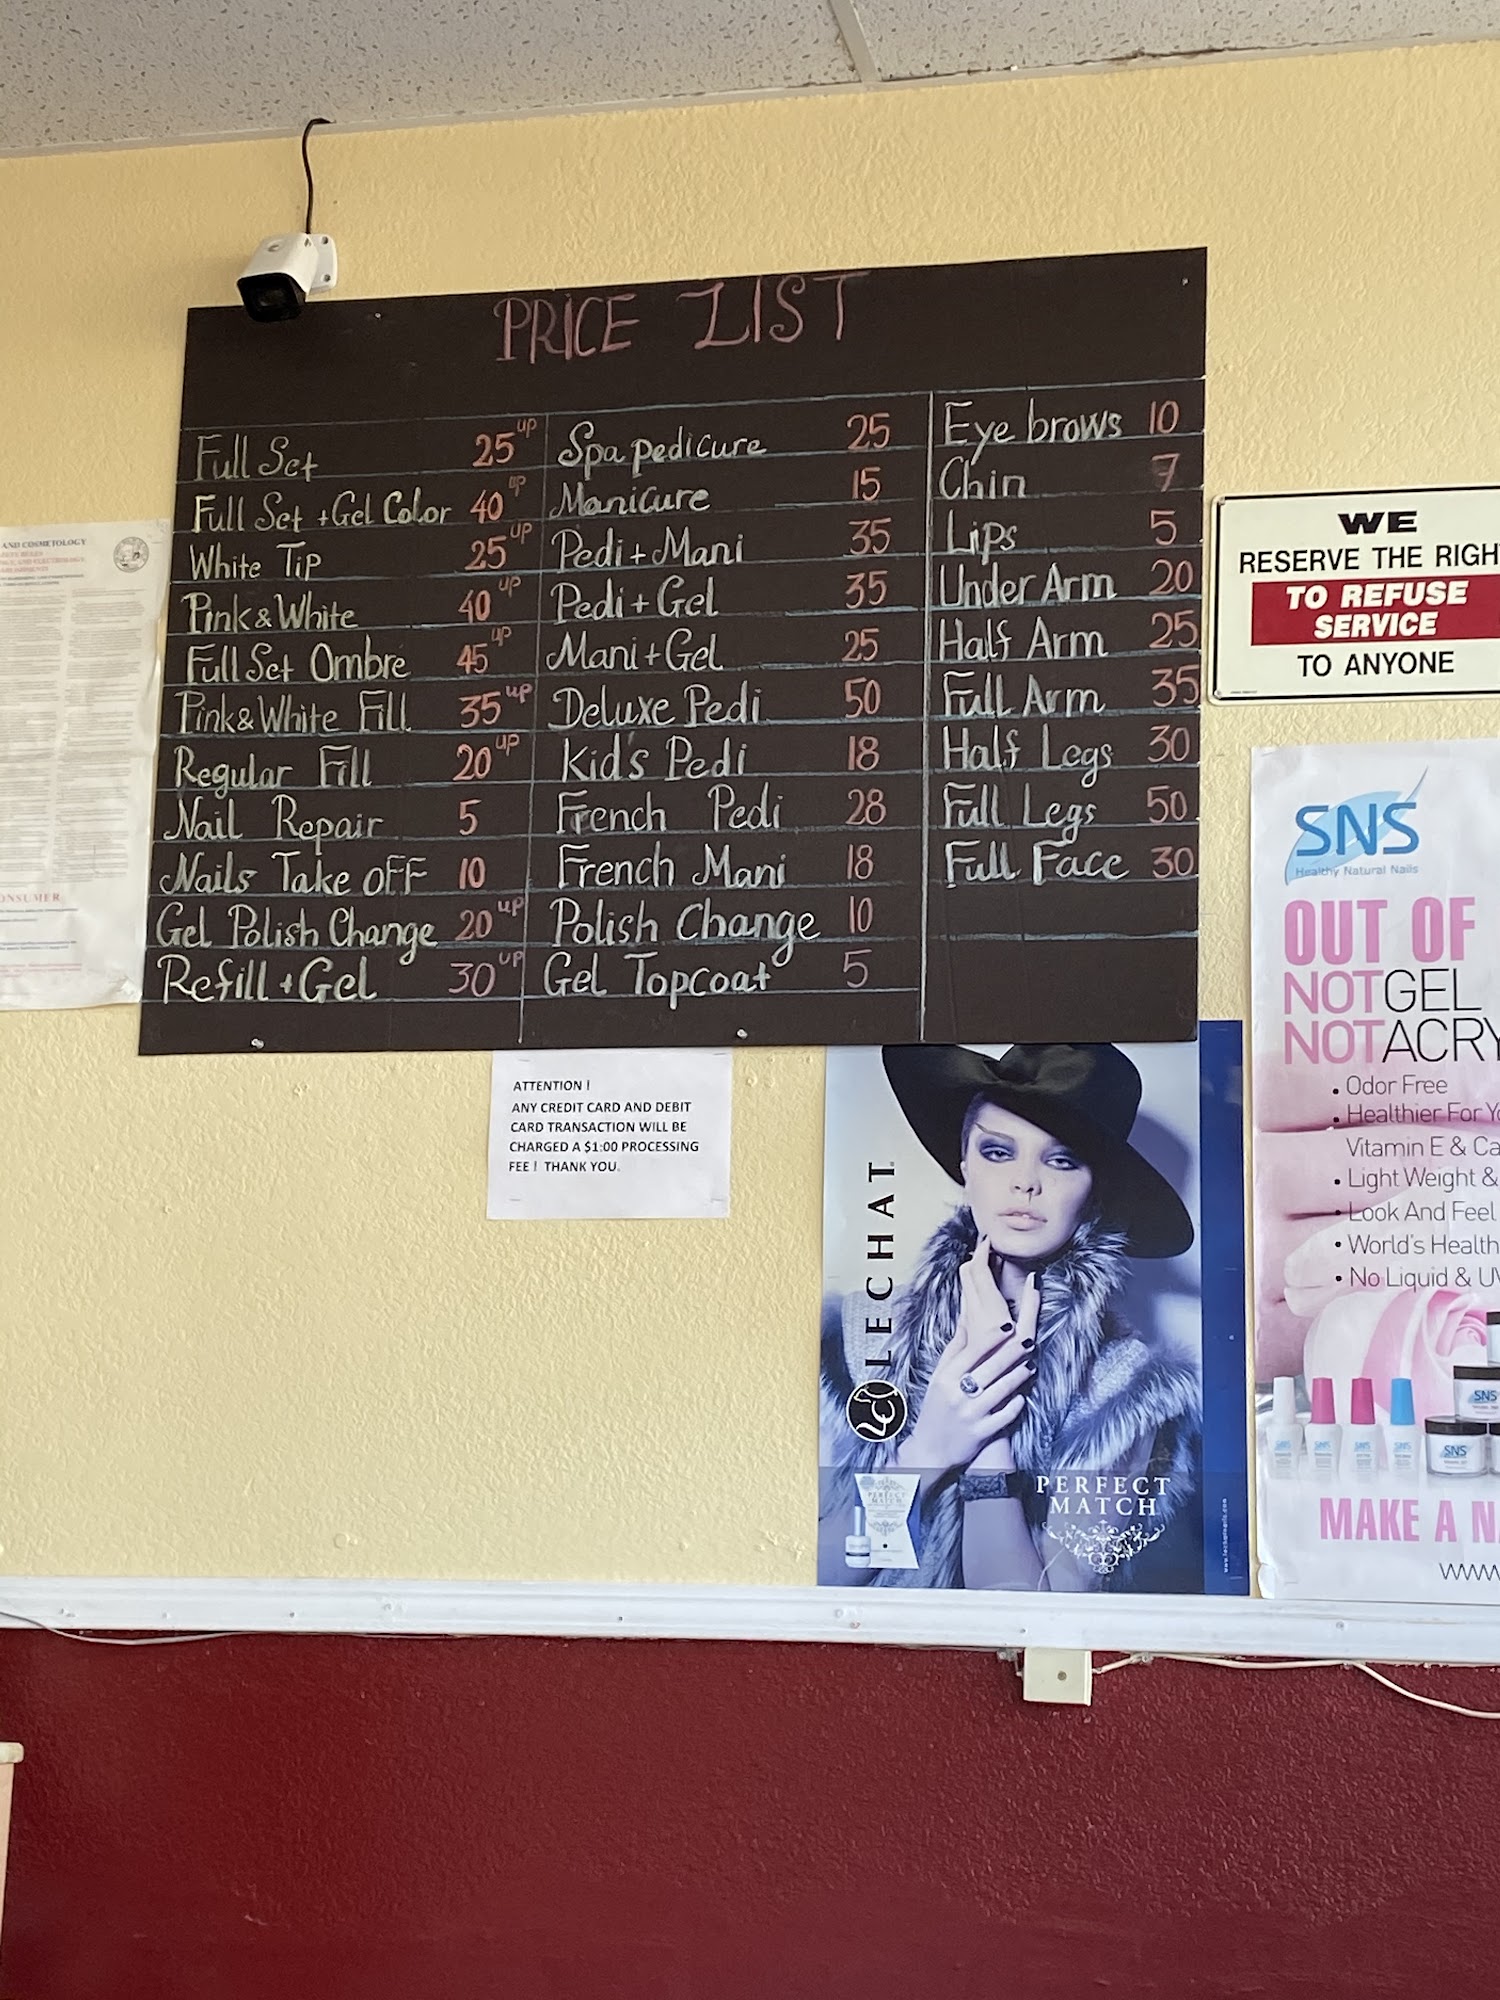 PRICE LIST
Full Set 25 up
Full Set + Gel Color 40 up
White Tip 25 up
Pink & White 40 up
Full Set Ombre 45 up
Pink & White Fill 35 up
Regular Fill 20 up
Nail Repair 5
Nails Take OFF 10
Gel Polish Change 20 up
Refill + Gel 30 up
Spa pedicure 25
Manicure 15
Pedi + Mani 35
Pedi + Gel 35
Mani + Gel 25
Deluxe Pedi 50
Kid's Pedi 18
French Pedi 28
French Mani 18
Polish Change 10
Gel Topcoat 5
Eye brows 10
Chin 7
Lips 5
Under Arm 20
Half Arm 25
Full Arm 35
Half Legs 30
Full Legs 50
Full Face 30
AND COSMETOLOGY
ONSUMER
ATTENTION !
ANY CREDIT CARD AND DEBIT
CARD TRANSACTION WILL BE
CHARGED A $1:00 PROCESSING
FEE ! THANK YOU.
LECHAT
LC
PERFECT
MATCH
PERFECT
MATCH
WE
RESERVE THE RIGH
TO REFUSE
SERVICE
TO ANYONE
SNS
Healthy Natural Nails
OUT OF
NOTGEL
NOTACRY
• Odor Free
• Healthier For Yo
Vitamin E & Ca
• Light Weight &
• Look And Feel
• World's Health
• No Liquid & UV
SNS
SNS
SNS
SNS
SNS
SNS
MAKE A N
www